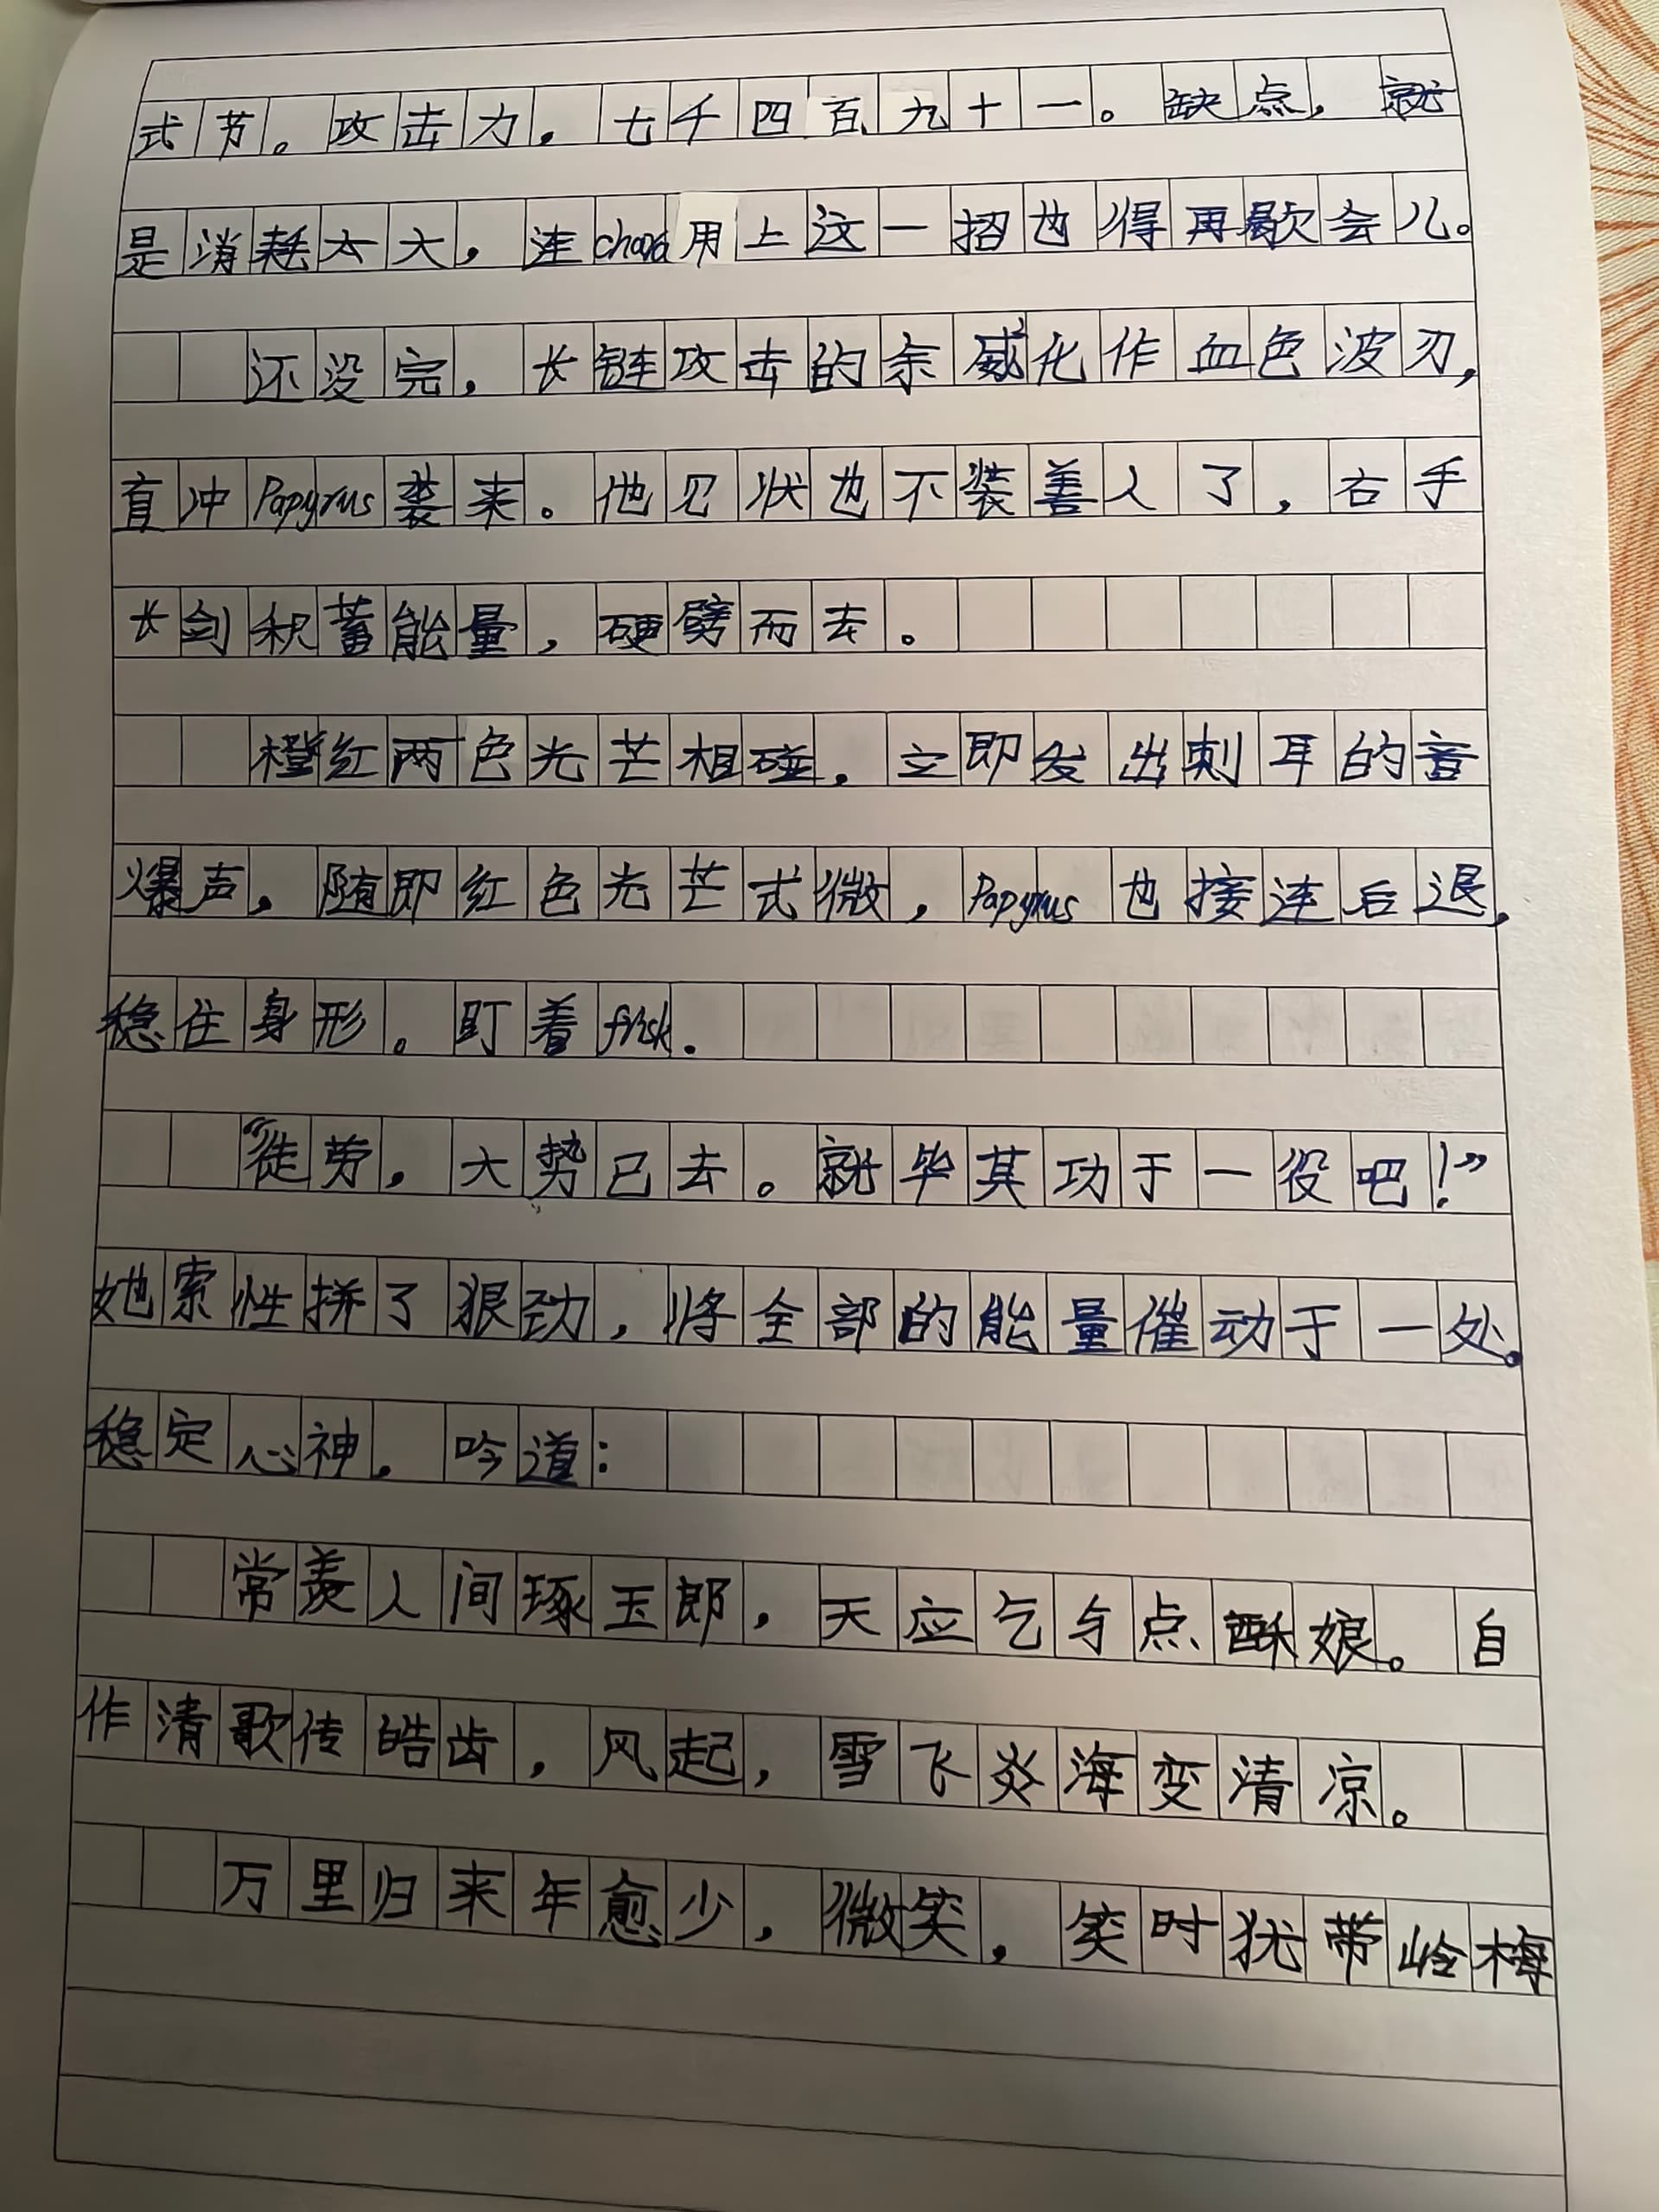 式节。攻击力，七千四百九十一。缺点，就
是消耗太大，连chara用上这一招也得再歇会儿。
还没完，长链攻击的余威化作血色波刃，
直冲Papyrus袭来。他见状也不装善人了，右手
长剑积蓄能量，硬劈而去。
橙红两色光芒相碰，立即发出刺耳的音
爆声，随即红色光芒式微，Papyrus也接连后退，
稳住身形。盯着frisk.
“徒劳，大势已去。就毕其功于一役吧！”
她索性拼了狠劲，将全部的能量催动于一处。
稳定心神。吟道：
常羡人间琢玉郎，天应乞与点酥娘。自
作清歌传皓齿，风起，雪飞炎海变清凉。
万里归来年愈少，微笑，笑时犹带岭梅